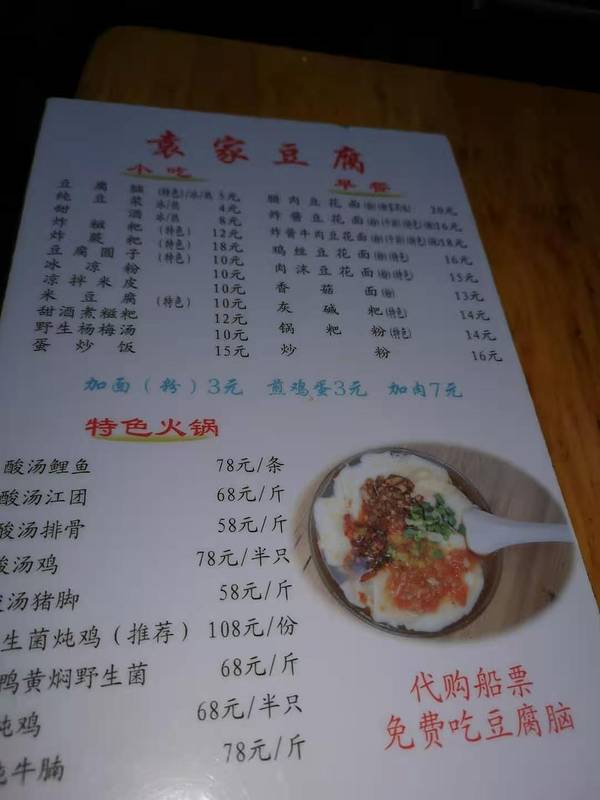 袁家豆腐
小吃 早餐
豆腐脑(特色)/冰/热 5元
纯豆浆 冰/热 4元
甜酒 冰/热 8元
炸糍粑(特色) 12元
炸蕨粑(特色) 18元
豆腐圆子(特色) 10元
冰凉粉 10元
凉拌米皮 10元
米豆腐(特色) 10元
甜酒煮糍粑 12元
野生杨梅汤 10元
蛋炒饭 15元
腊肉豆花面(粉) 20元
炸酱豆花面(粉) 16元
炸酱牛肉豆花面(粉) 18元
鸡丝豆花面(粉) 16元
肉沫豆花面(粉)(特色) 15元
香菇面(粉) 13元
灰碱粑(特色) 14元
锅粑粉(特色) 14元
炒粉 16元
加面(粉)3元 煎鸡蛋3元 加肉7元
特色火锅
酸汤鲤鱼 78元/条
酸汤江团 68元/斤
酸汤排骨 58元/斤
酸汤鸡 78元/半只
汤猪脚 58元/斤
生菌炖鸡(推荐) 108元/份
鸭黄焖野生菌 68元/斤
炖鸡 68元/半只
炖牛腩 78元/斤
代购船票
免费吃豆腐脑